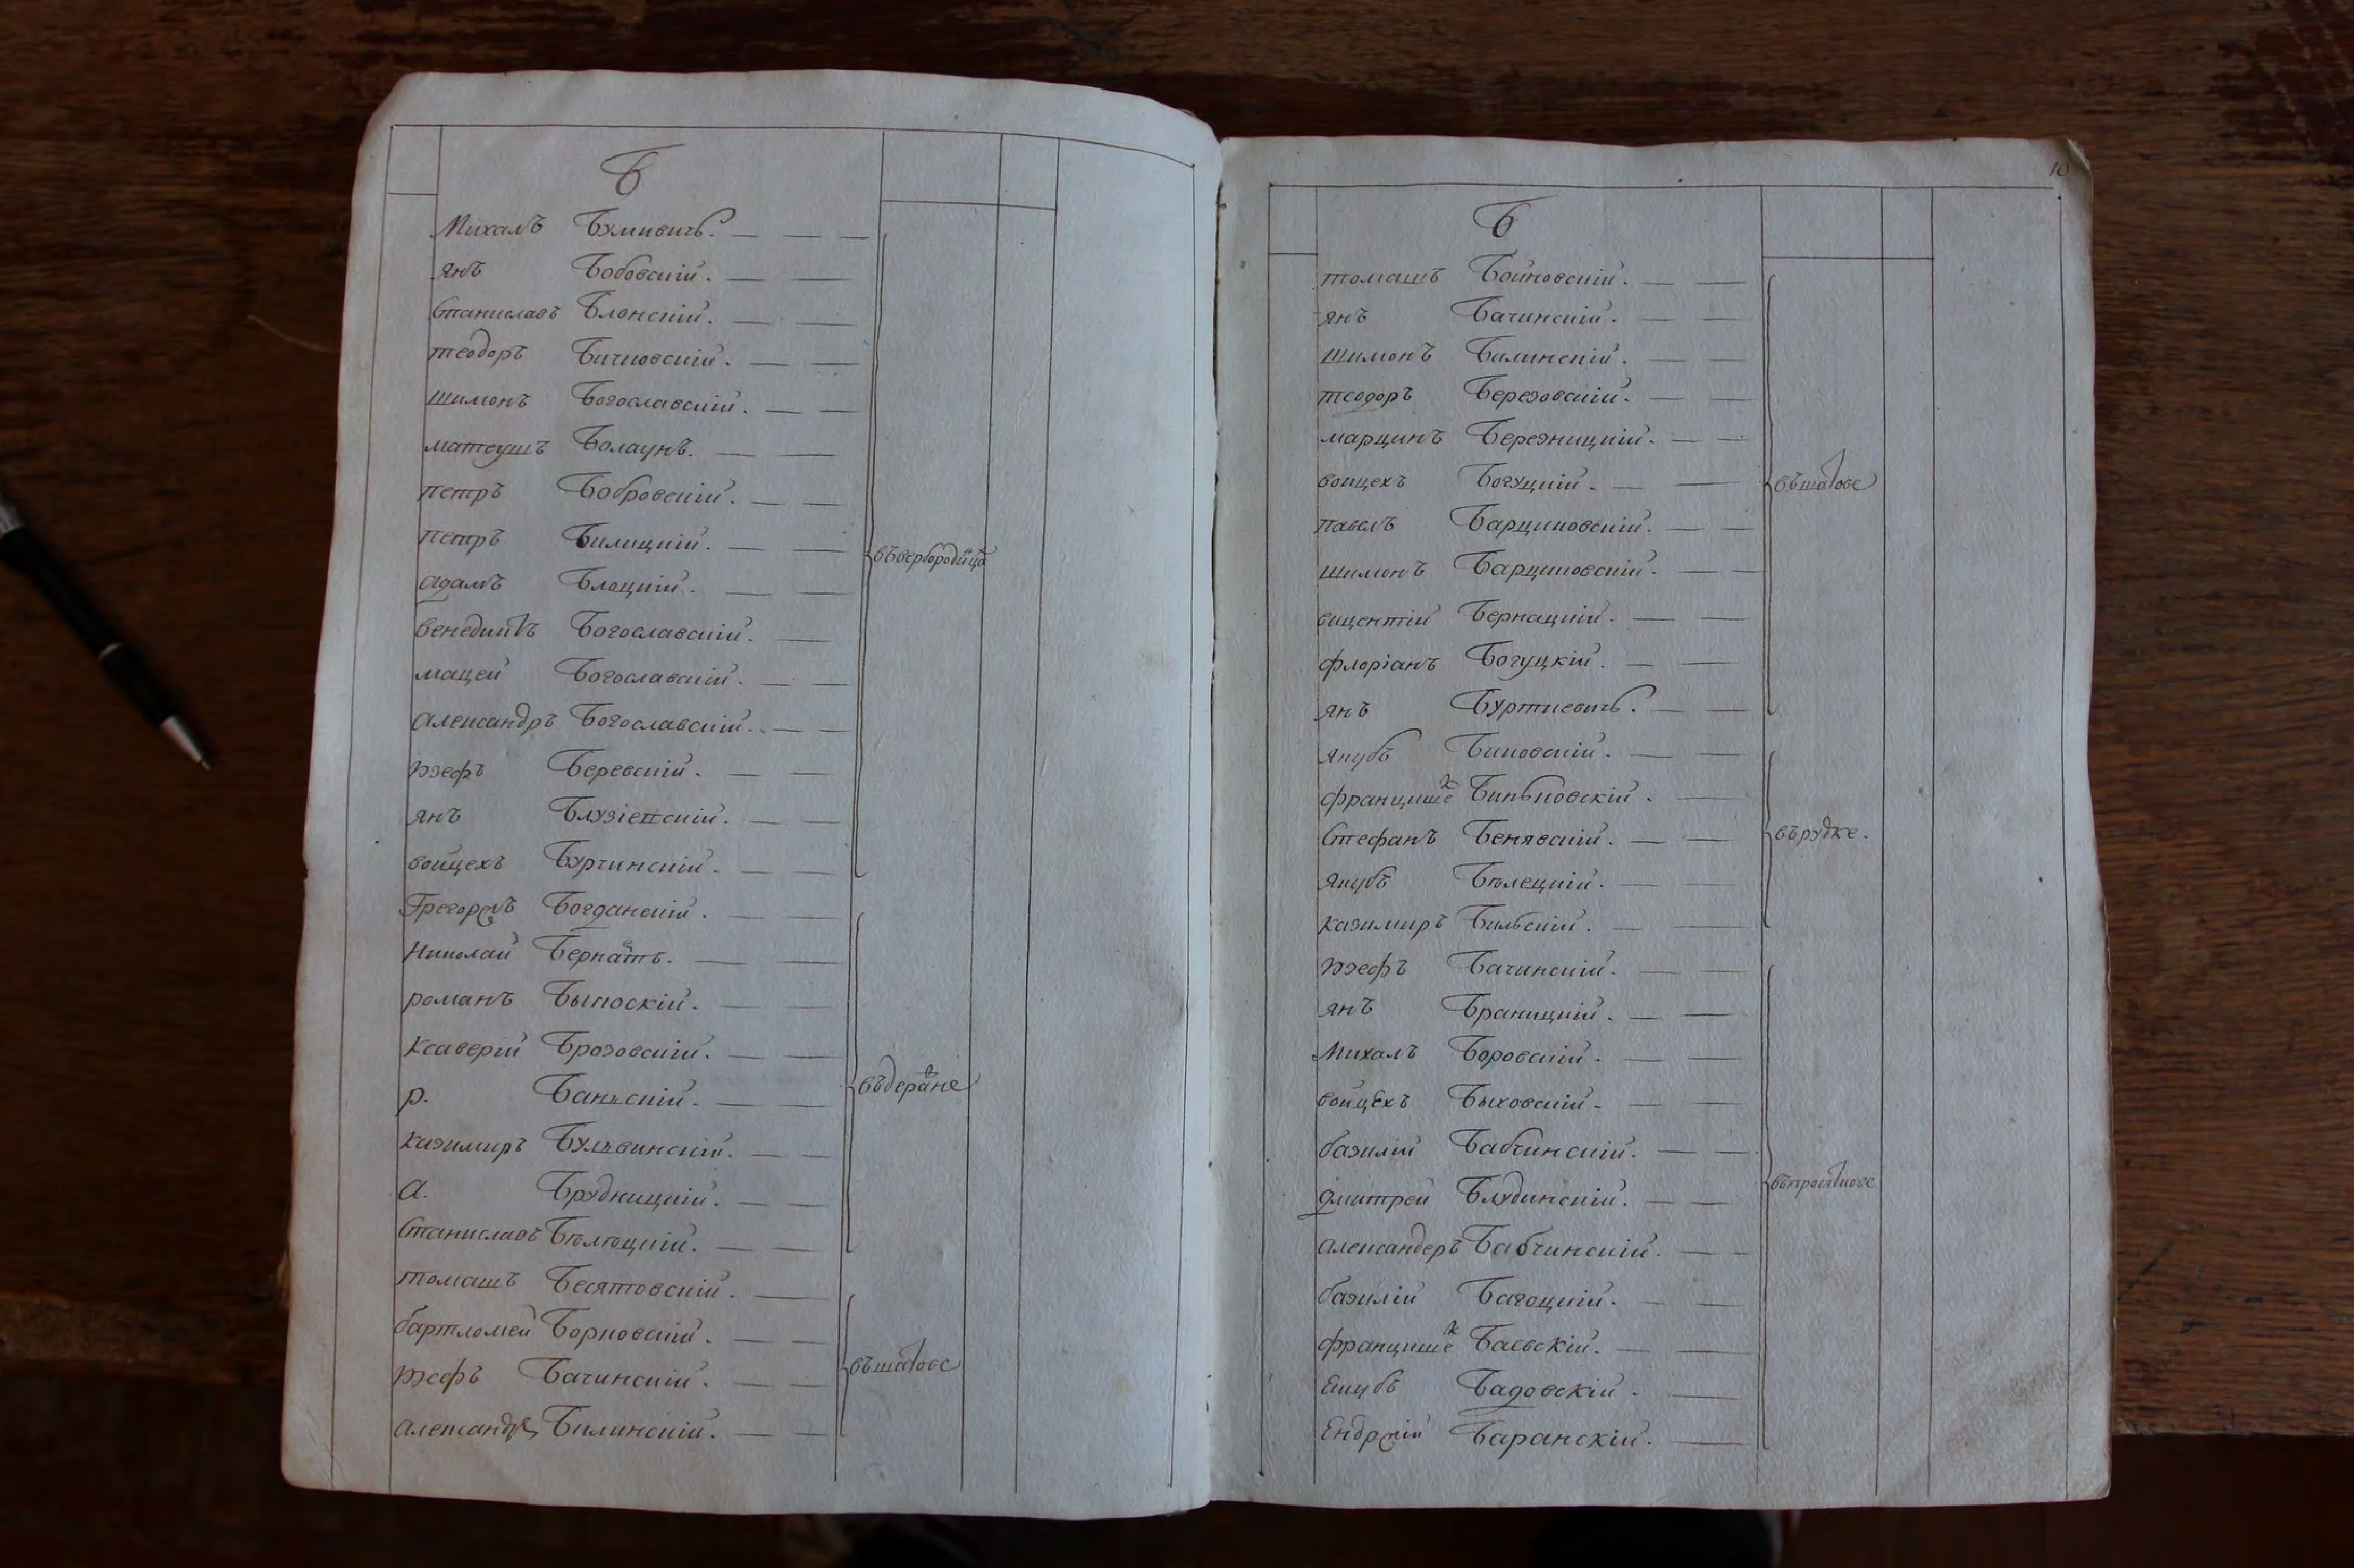 Б
Михалъ Букиевичъ.
янъ Бобовскій.
Станиславъ Блонскій.
теодоръ Бичковскій.
шимонъ Богославскій.
матеушъ Болаунъ.
петръ Бобровскій.
петръ Билицкій.
адамъ Блоцкій.
бенедиктъ Богославскій.
мацей Богославскій.
александръ Богославскій.
юзефъ Беревскій.
янъ
войцехъ Бурчинскій.
Грегоръ Богданскій.
Николай Бернатъ.
романъ Быкоскій.
Ксаверій Брозовскій.
р. Банъскій.
казимиръ
а. Брудницкій.
Станиславъ
томашъ Бесятовскій.
бартломей Борковскій.
юзефъ Бачинскій.
александръ Билинскій.
въ вербородицѣ
въ деражне
въ шатове
10
Б
томашъ Бойковскій.
янъ Бачинскій.
шимонъ Билинскій.
теодоръ Березовскій.
марцинъ Березницкій.
войцехъ Богуцкій.
павелъ Барциковскій.
шимонъ Барциковскій.
вицентій Бернацкій.
флоріанъ Богуцкій.
янъ Буркиевичъ.
якубъ Биковскій.
францишекъ Биньковскій.
Стефанъ Бенявскій.
якубъ Бѣлецкій.
казимиръ Бильскій.
юзефъ Бачинскій.
янъ Браницкій.
Михалъ Боровскій.
войцехъ Быховскій.
базилій Бабчинскій.
дмитрей Блудинскій.
александеръ Бабчинскій.
базилій Багоцкій.
францишекъ Баевскій.
Якубъ Бадовскій.
Ендржій Баранскій.
въ шатове
въ рудке.